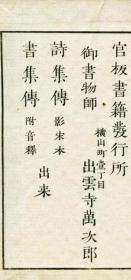 官板書籍發行所
御書物師
横山町壹丁目
出雲寺萬次郎
詩集傳 影宋本
書集傳 附音釋
出来